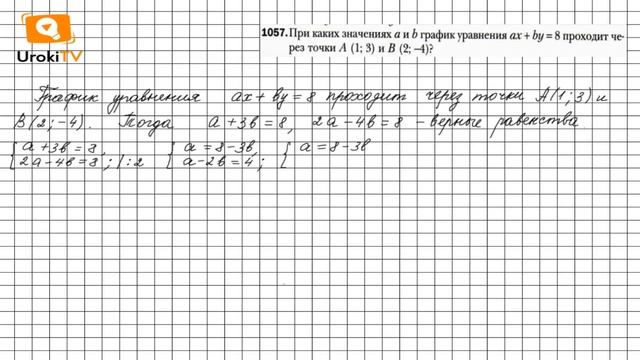 UrokiTV
1057. При каких значениях a и b график уравнения ax + by = 8 проходит че-
рез точки A (1; 3) и B (2; –4)?
График уравнения ax + by = 8 проходит через точки A(1; 3) и
B(2; -4). Тогда a + 3b = 8, 2a - 4b = 8 - верные равенства
{ a + 3b = 8, { a = 8 - 3b, { a = 8 - 3b
2a - 4b = 8; |: 2 a - 2b = 4;